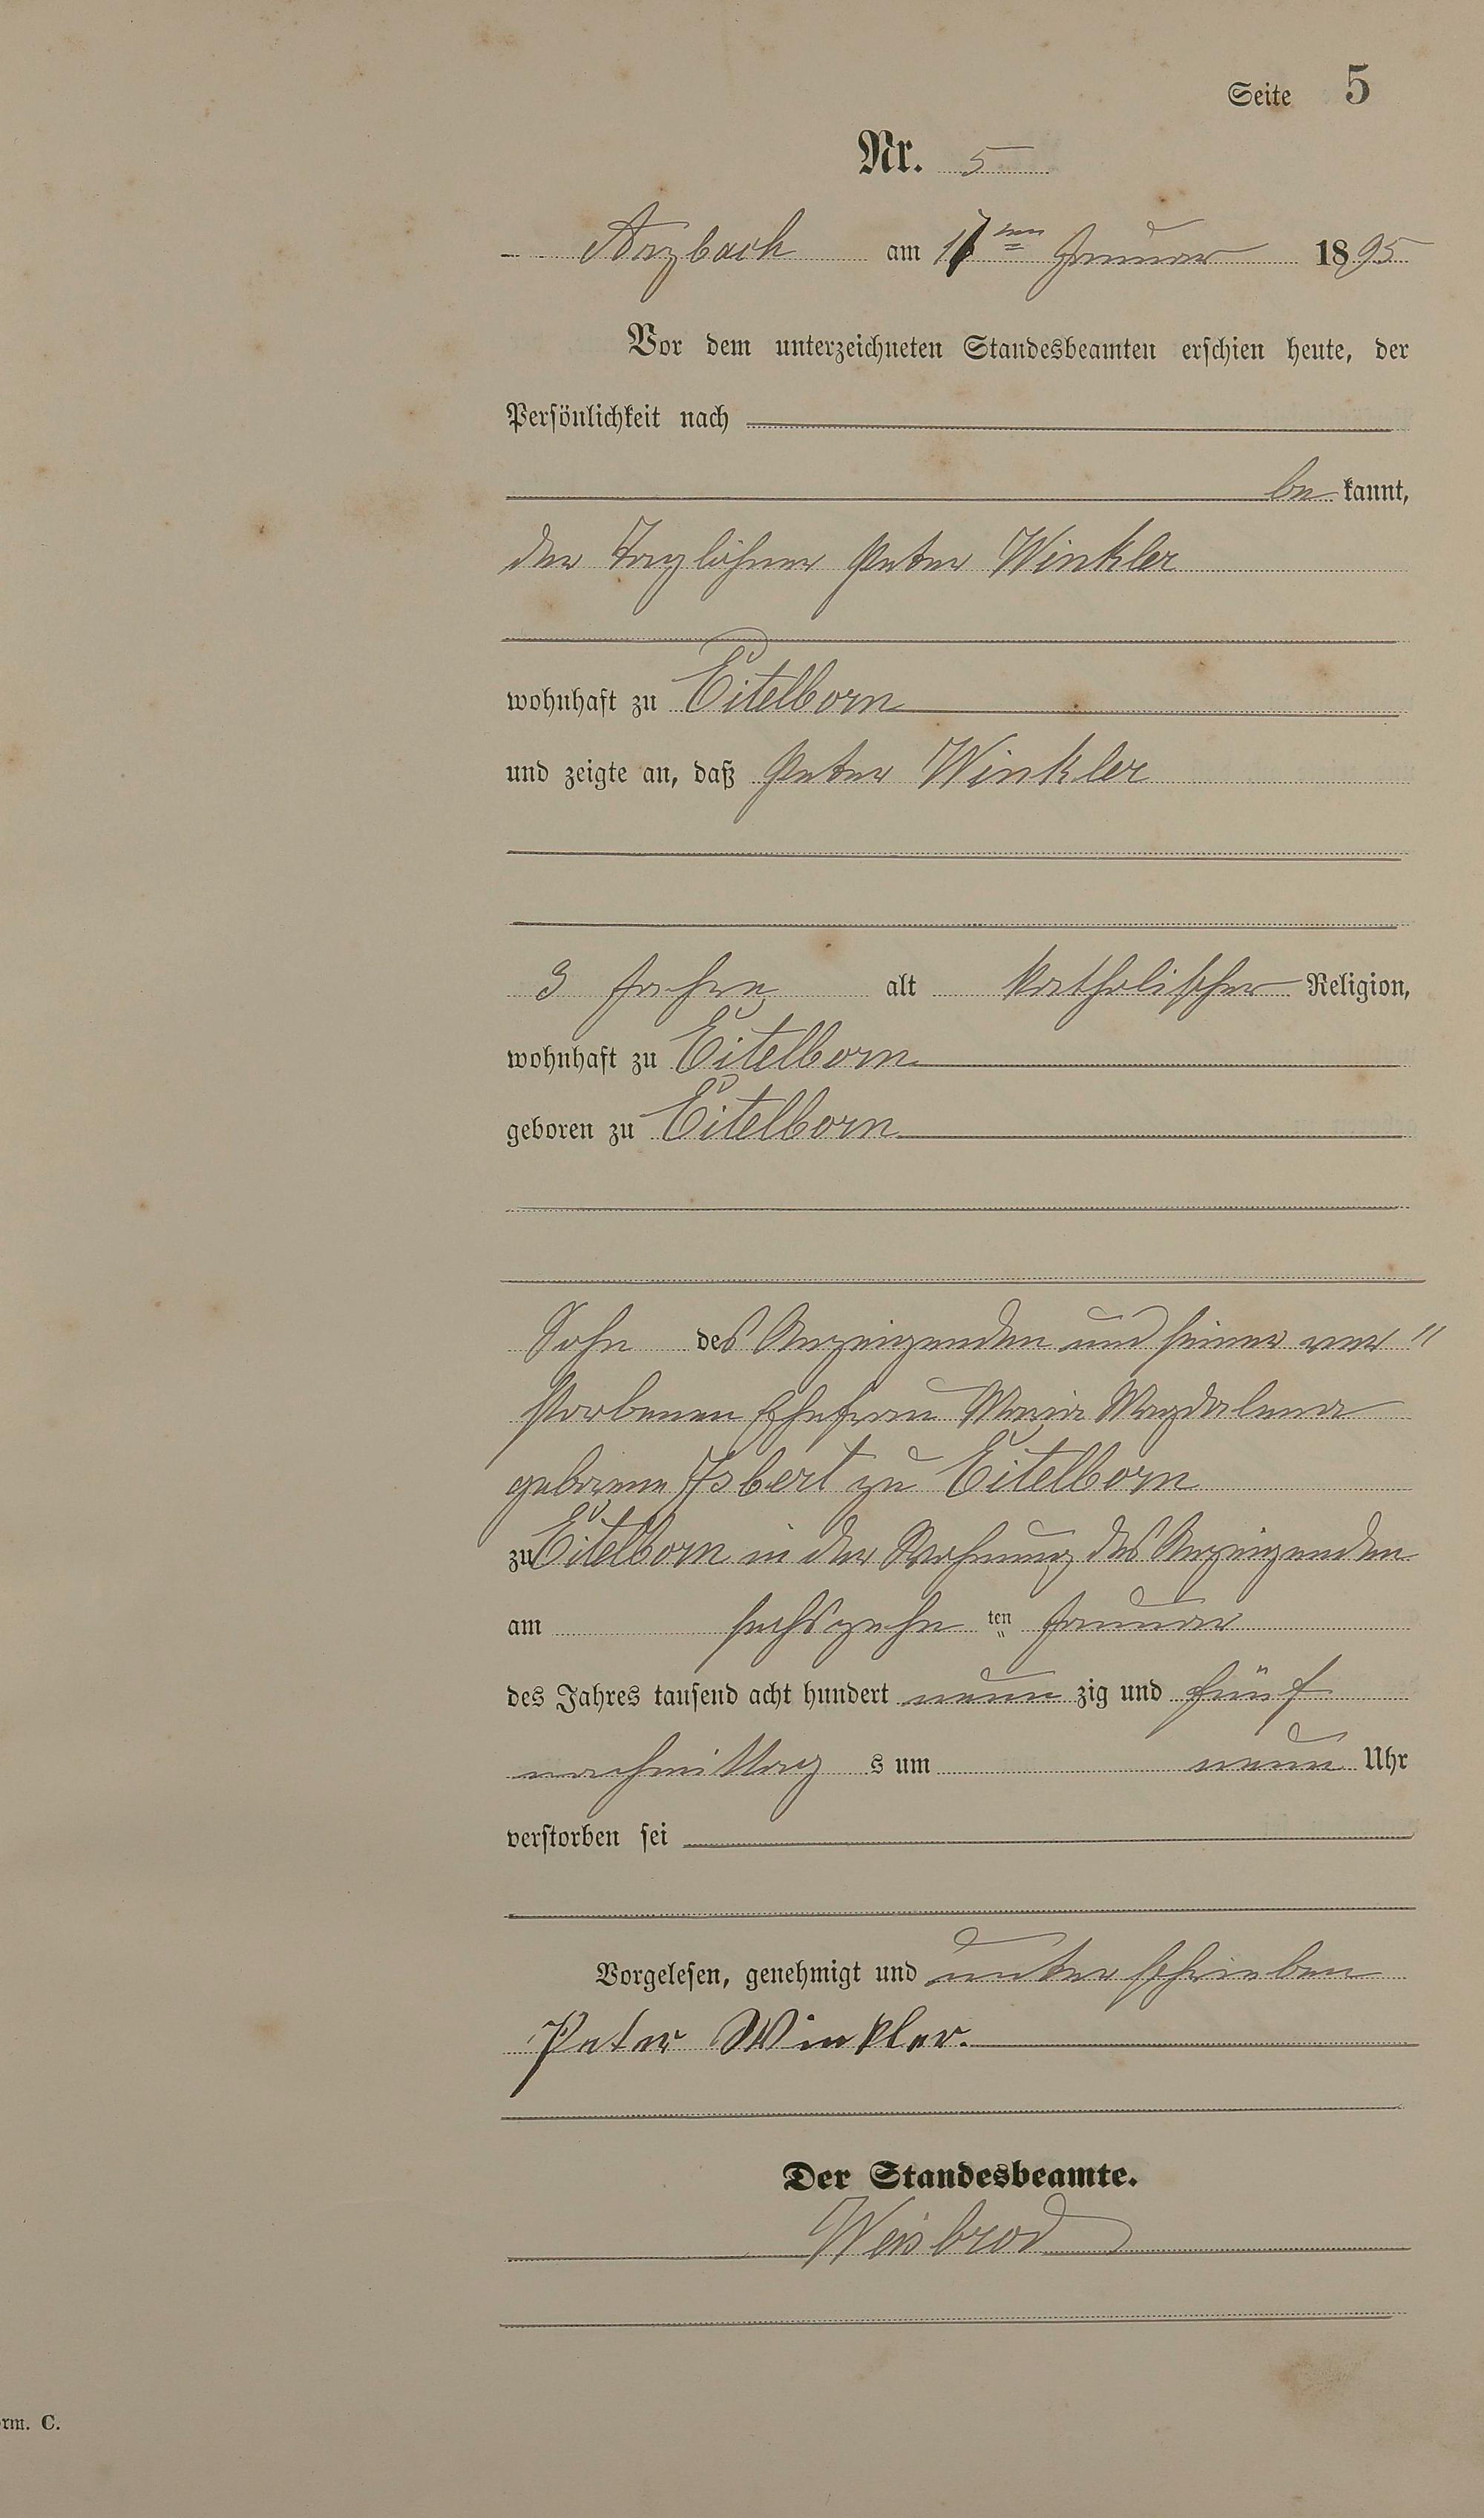 Seite 5
Nr. 5
Arzbach am 17ten Januar 1895
Vor dem unterzeichneten Standesbeamten erschien heute, der
Persönlichkeit nach
be kannt,
der Taglöhner Peter Winkler
wohnhaft zu Eitelborn
und zeigte an, daß Peter Winkler
3 Jahre alt katholischer Religion,
wohnhaft zu Eitelborn
geboren zu Eitelborn
Sohn des Anzeigenden und seiner ver"
storbenen Ehefrau Maria Magdalena
geborene Isbert zu Eitelborn
zu Eitelborn in der Wohnung des Anzeigenden
am sechszehn ten Januar
des Jahres tausend acht hundert neun zig und fünf
nachmittag s um neun Uhr
verstorben sei
Vorgelesen, genehmigt und unterschrieben
Peter Winkler.
Der Standesbeamte.
Weisbrod
rm. C.